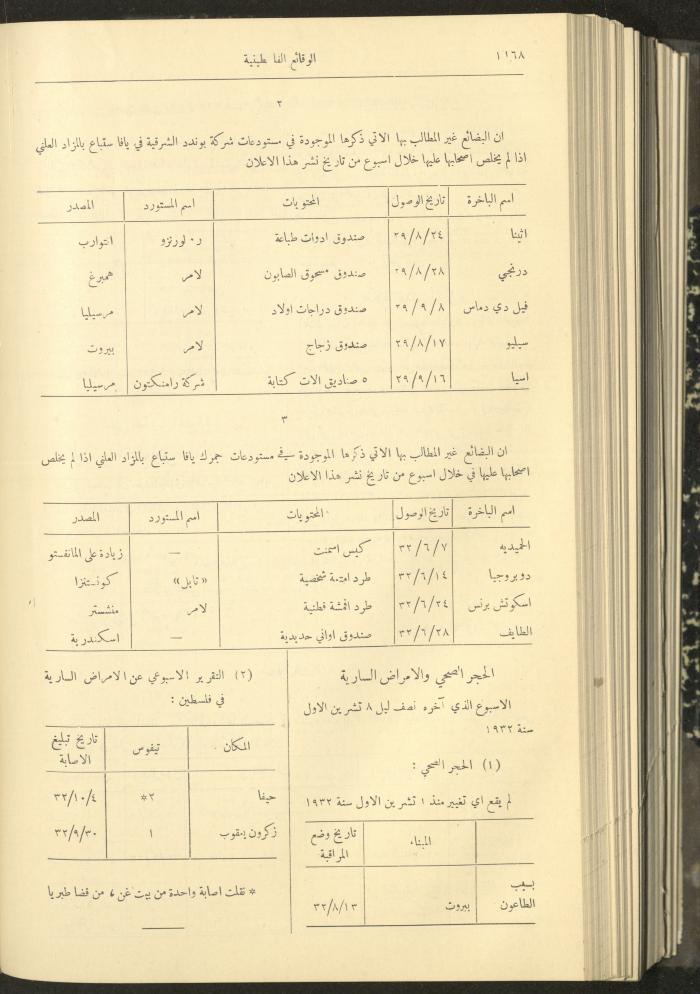 ١١٦٨
الوقائع الفلسطينية
٢
ان البضائع غير المطالب بها الاتي ذكرها الموجودة في مستودعات شركة بوندد الشرقية في يافا ستباع بالمزاد العلني
اذا لم يخلص اصحابها عليها خلال اسبوع من تاريخ نشر هذا الاعلان
اسم الباخرة تاريخ الوصول المحتويات اسم المستورد المصدر
اثينا ٢٩/٨/٢٤ صندوق ادوات طباعة ر٠ لورنزو انتوارب
درنجي ٢٩/٨/٢٨ صندوق مسحوق الصابون لامر همبرغ
فيل دي دماس ٢٩/٩/٨ صندوق دراجات اولاد لامر مرسيليا
سيليو ٢٩/٨/١٧ صندوق زجاج لامر بيروت
اسيا ٢٩/٩/١٦ ٥ صناديق الات كتابة شركة رامنكتون مرسيليا
٣
ان البضائع غير المطالب بها الاتي ذكرها الموجودة في مستودعات جمرك يافا ستباع بالمزاد العلني اذا لم يخلص
اصحابها عليها في خلال اسبوع من تاريخ نشر هذا الاعلان
اسم الباخرة تاريخ الوصول المحتويات اسم المستورد المصدر
الحميديه ٣٢/٦/٧ كيس اسمنت — زيادة على المانفستو
دوبروجيا ٣٢/٦/١٤ طرد امتعة شخصية «تابل» كونستنزا
اسكوتش برنس ٣٢/٦/٢٤ طرد اقمشة قطنية لامر منشستر
الطايف ٣٢/٦/٢٨ صندوق اواني حديدية — اسكندرية
الحجر الصحي والامراض السارية
الاسبوع الذي آخره نصف ليل ٨ تشرين الاول
سنة ١٩٣٢
(١) الحجر الصحي :
لم يقع اي تغيير منذ ١ تشرين الاول سنة ١٩٣٢
الميناء تاريخ وضع
المراقبة
بسبب
الطاعون بيروت ٣٢/٨/١٣
(٢) التقرير الاسبوعي عن الامراض السارية
في فلسطين :
المكان تيفوس تاريخ تبليغ
الاصابة
حيفا ٢* ٣٢/١٠/٤
زكرون يعقوب ١ ٣٢/٩/٣٠
* نقلت اصابة واحدة من بيت غن ، من قضا طبريا